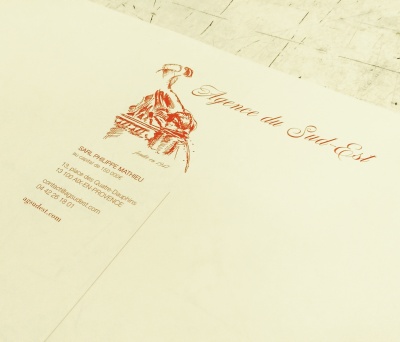 Agence du Sud-Est
SARL PHILIPPE MATHIEU
au capital de 150 000€
13, place des Quatre Dauphins
13 100 AIX-EN-PROVENCE
contact@agsudest.com
04 42 26 18 01
agsudest.com